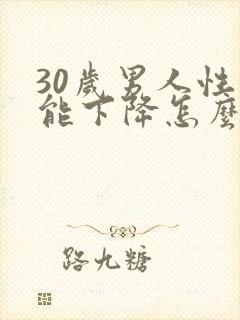 30歲男人性
能下降怎麼
路九糖